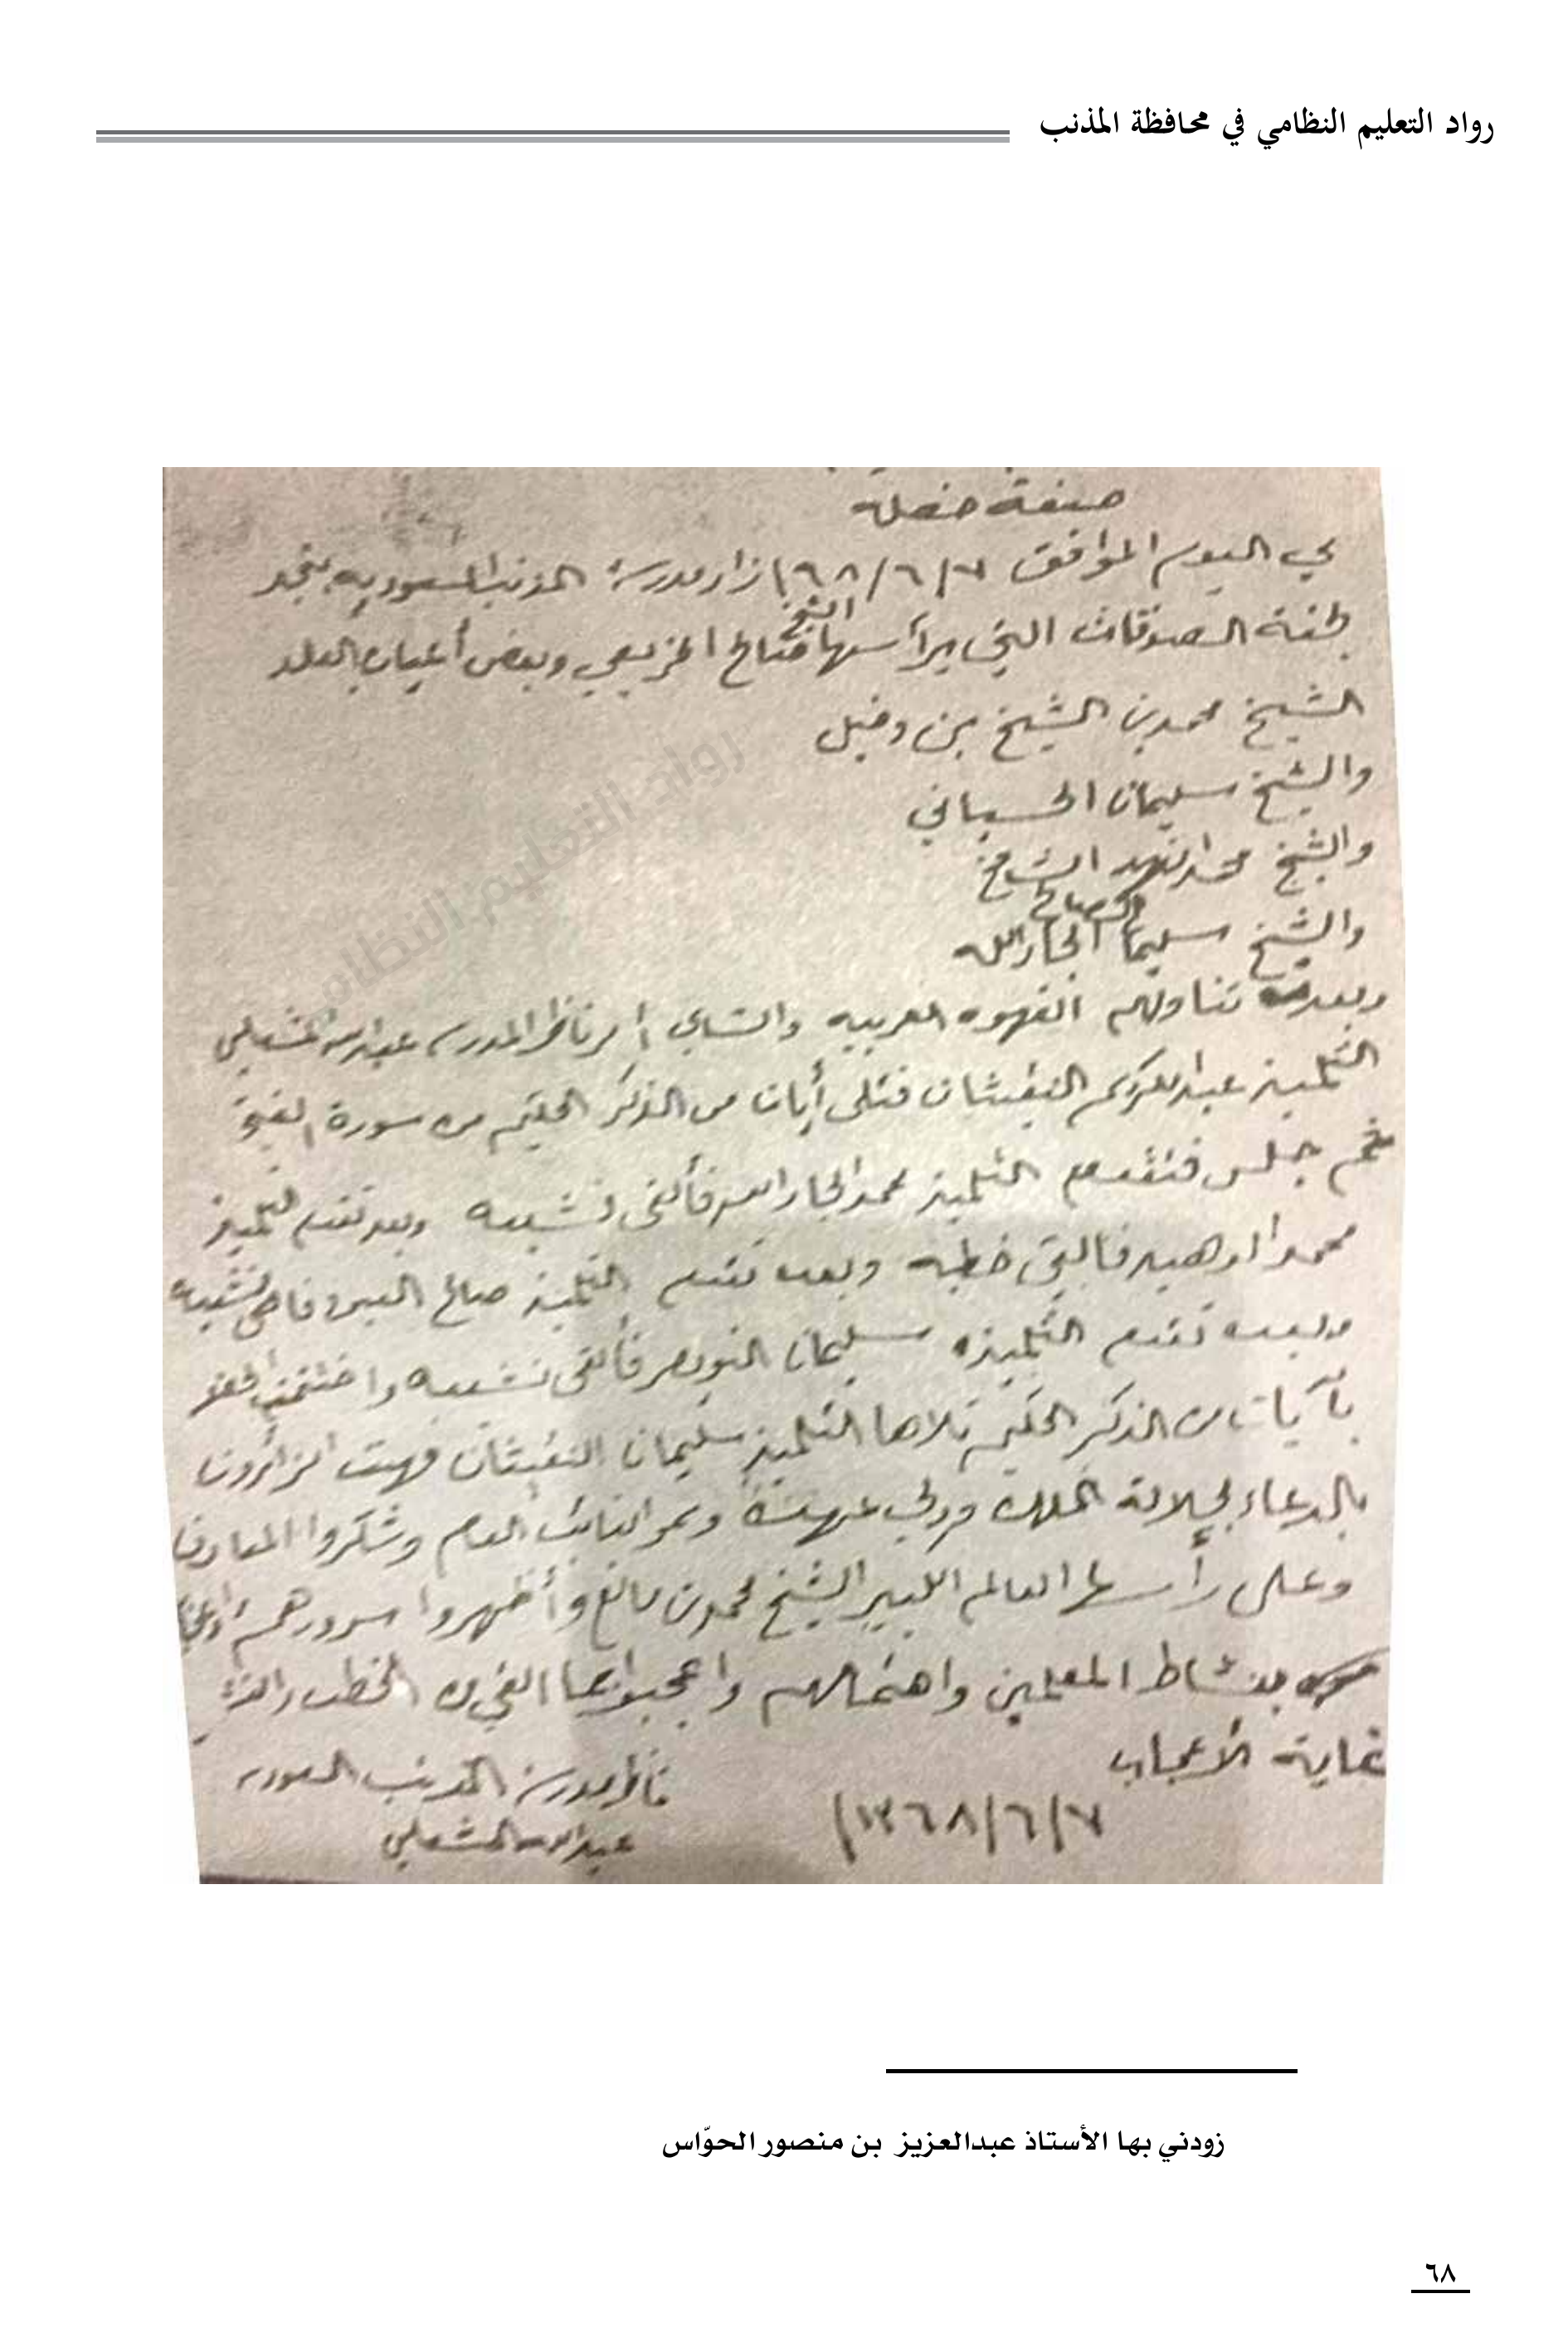 رواد التعليم النظامي في محافظة المذنب
صفة حفله
في اليوم الموافق ٦٨/٦/٧ زار مدرسة المذنب السعوديه بنجد
لجنة الصدقات التي يرأسها الشيخ صالح المزيعي وبعض أعيان البلد
الشيخ محمد بن الشيخ بن دخيل
والشيخ سليمان الحسياني
والشيخ محمد الفهد الشامخ
والشيخ سليمان الصالح الجارالله
وبعد تناولهم القهوه العربيه والشاي أمر ناظر المدرسه عبدالله المشعلي
التلميذ عبدالكريم النغيثان فتلى أيات من الذكر الحكيم من سورة الفتح
ثم جلس فتقدم التلميذ محمد الجارالله فألقى نشيده وبعد تقدم التلميذ
محمد الوهيد فالقى خطبه وبعده تقدم التلميذ صالح نشيده
وبعده تقدم التلميذه سليمان النويصر فألقى نشيده واختتمت الحفله
بأيات من الذكر الحكيم تلاها التلميذ سليمان النغيثان فهتف الزائرون
بالدعاء لجلالة الملك وولي عهده وسمو النائب العام وشكروا المعارف
وعلى رأسها العالم الكبير الشيخ محمد بن مانع وأظهروا سرورهم
بنشاط المعلمين واهتمامهم واعجبوا من الخطب
غاية الأعجاب
ناظر مدرسة المذنب السعوديه
١٣٦٨/٦/٧
عبدالله المشعلي
رواد التعليم النظامي
زودني بها الأستاذ عبدالعزيز بن منصور الحوّاس
٦٨